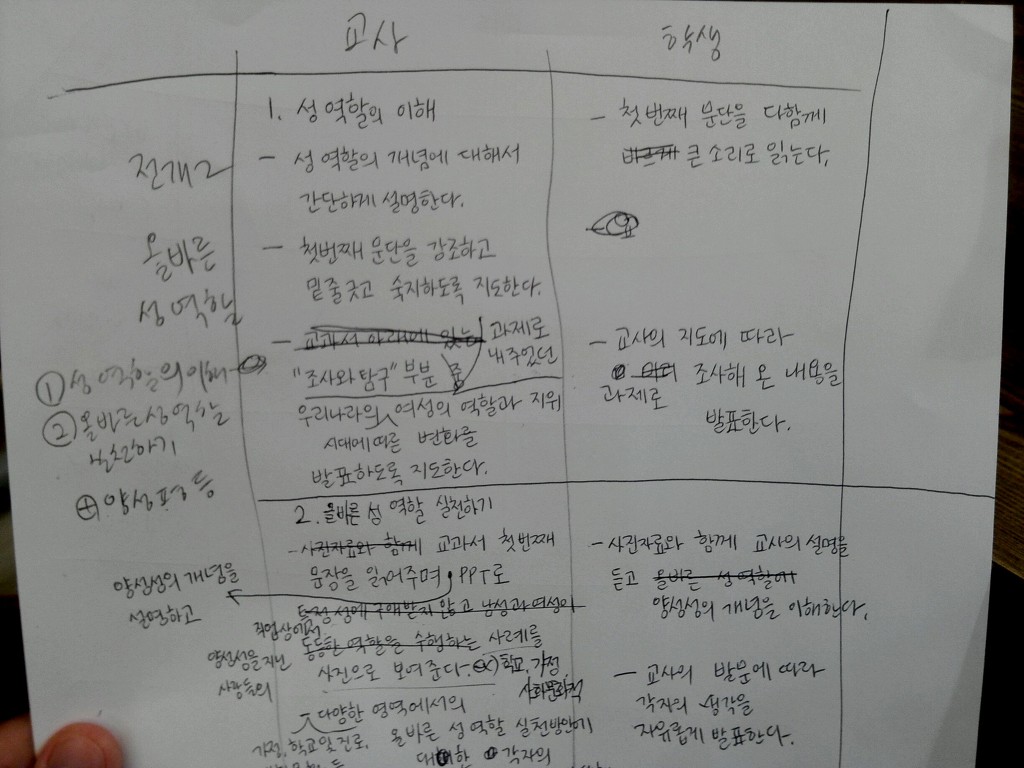 교사
학생
전개2
올바른
성 역할
① 성 역할의 이해
② 올바른 성 역할
실천하기
⊕ 양성평등
1. 성 역할의 이해
- 성 역할의 개념에 대해서
간단하게 설명한다.
- 첫번째 문단을 강조하고
밑줄 긋고 숙지하도록 지도한다.
- 교과서 아래에 있는 과제로
내주었던
"조사와 탐구" 부분 중
우리나라의 여성의 역할과 지위
시대에 따른 변화를
발표하도록 지도한다.
- 첫번째 문단을 다함께
바르게 큰 소리로 읽는다.
- 교사의 지도에 따라
조사해 온 내용을
과제로
발표한다.
2. 올바른 성 역할 실천하기
- 사진자료와 함께 교과서 첫번째
문장을 읽어주며, PPT로
양성성의 개념을
설명하고
특정 성에 구애받지 않고 남성과 여성이
직업상에서
동등한 역할을 수행하는 사례를
양성성을 지닌
사람들의
사진으로 보여준다. ex) 학교, 가정
사회문화적
다양한 영역에서의
가정, 학교 및 진로,
올바른 성 역할 실천방안에
대한 각자의
- 사진자료와 함께 교사의 설명을
듣고 올바른 성 역할에
양성성의 개념을 이해한다.
- 교사의 발문에 따라
각자의 생각을
자유롭게 발표한다.